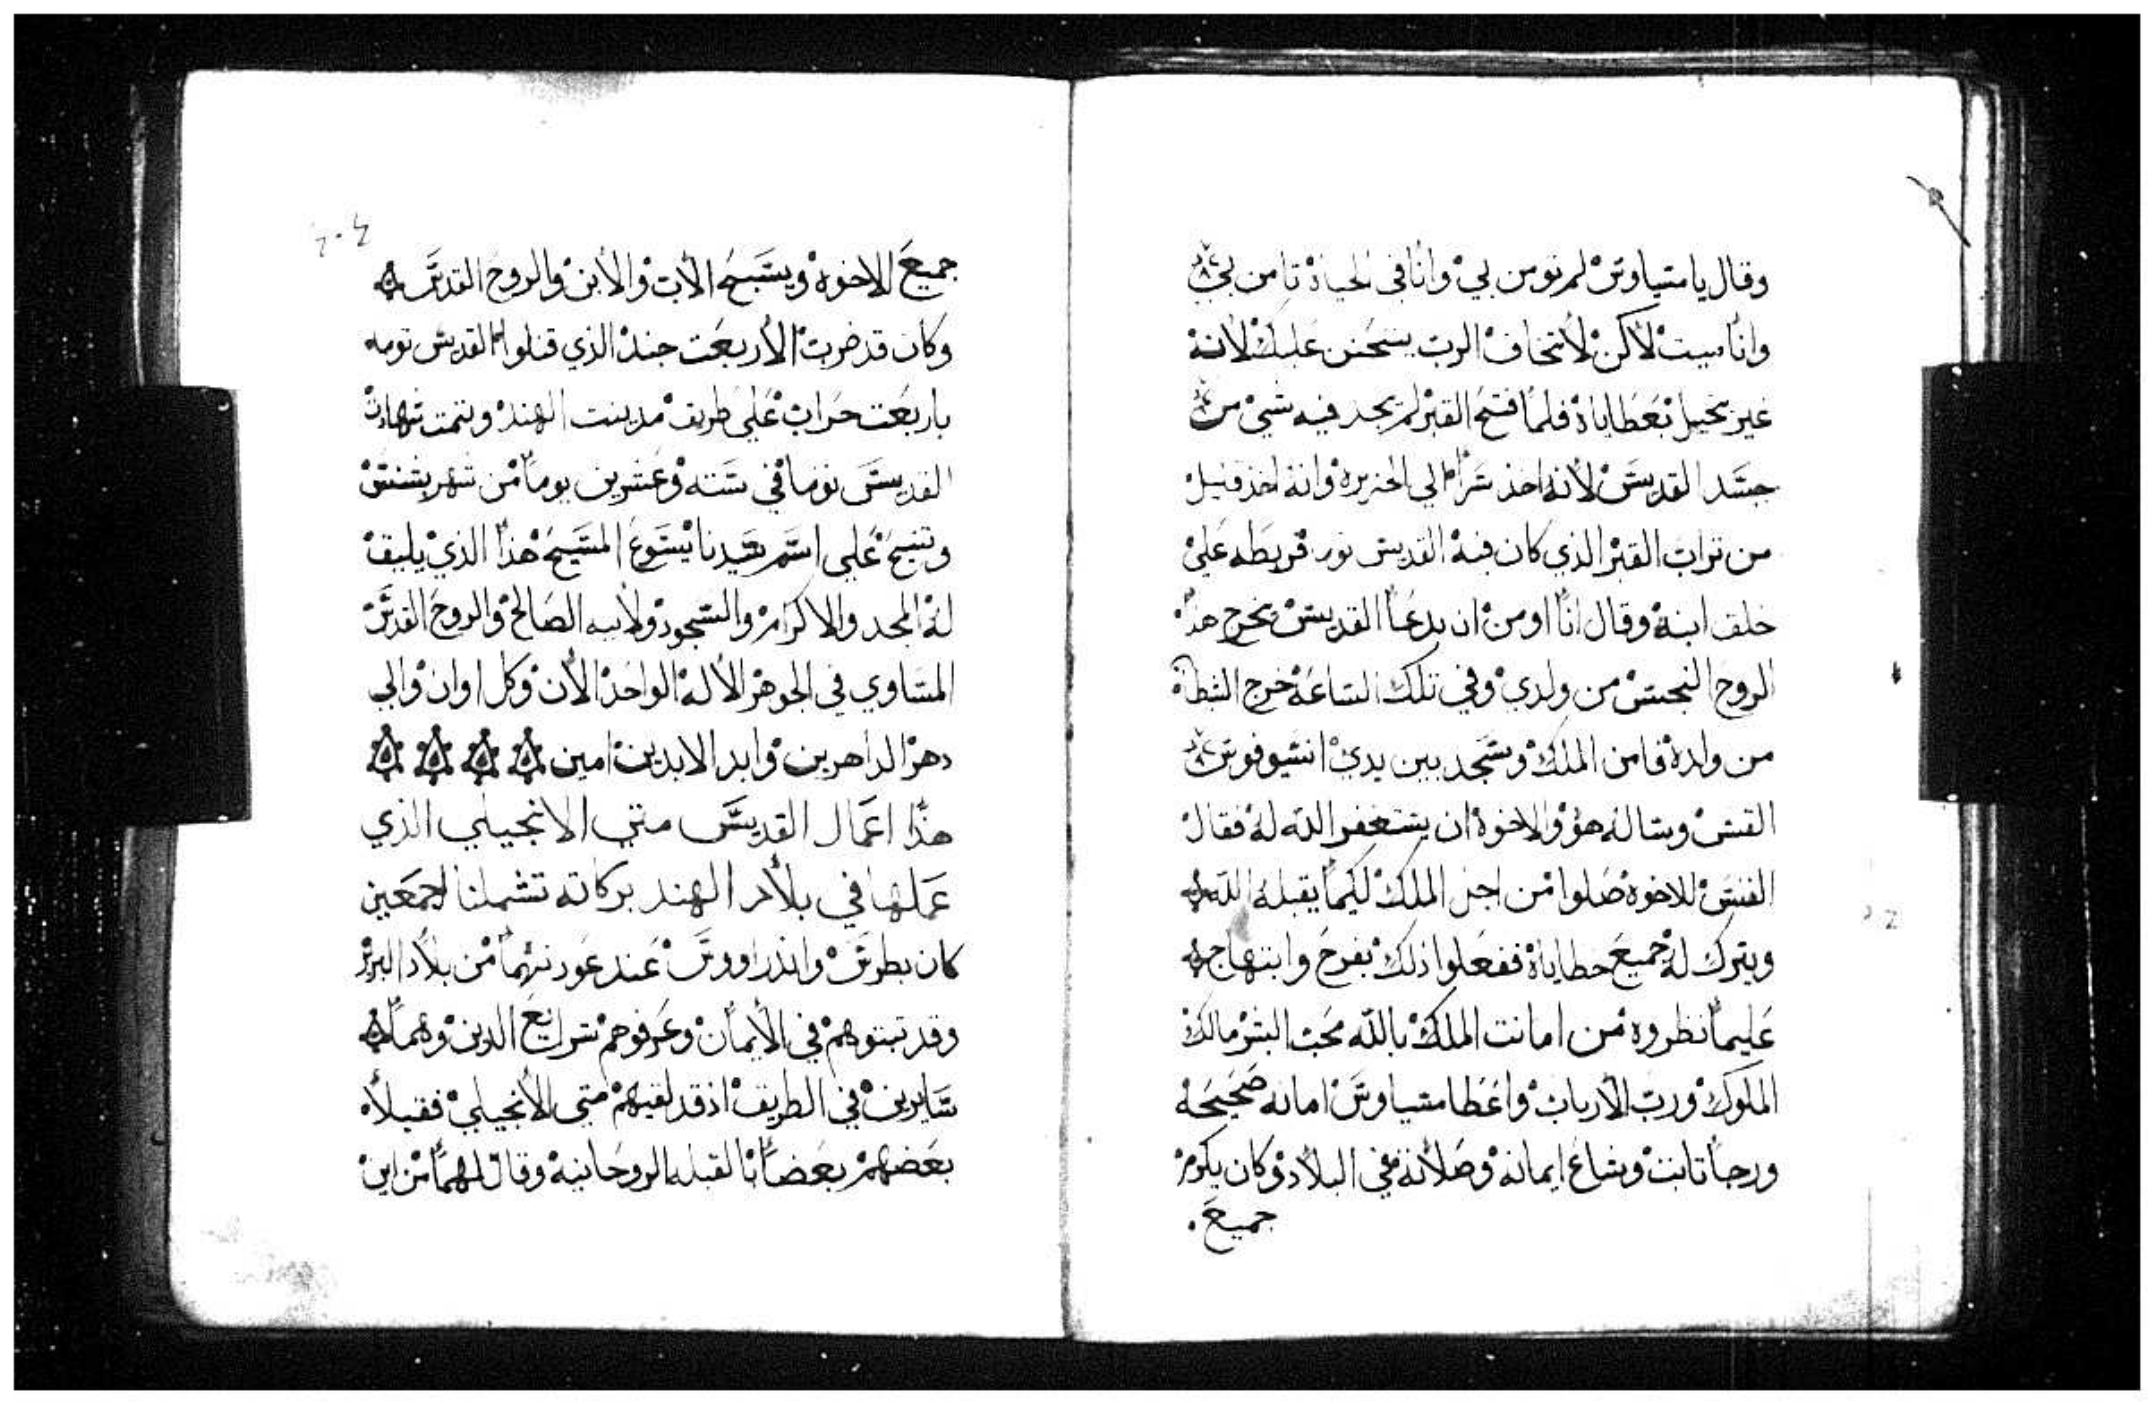 وقال يا متياوس لم تومن بي وانا في الحياة تامن بي
وانا ميت لاكن لا تخاف الرب يتحنن عليك لانه
غير بخيل بعطاياه فلما فتح القبر لم يجد فيه شي من
جسد القديس لانه اخذ سرا الي الجزيره وانه اخذ قليل
من تراب القبر الذي كان فيه القديس توما فربطه علي
خلق ابنه وقال انا اومن ان بدعا القديس يخرج هذا
الروح النجس من ولدي وفي تلك الساعه خرج الشيطان
من ولده فامن الملك وسجد بين يدي انسيوفوس
القس وساله هو والاخوه ان يستغفر الله له فقال
القس للاخوه صلوا من اجل الملك ليكما يقبله الله
ويترك له جميع خطاياه ففعلوا ذلك بفرح وابتهاج
عليما نظروه من امانت الملك بالله محب البشر مالك
الملوك ورب الارباب واعطا متياوس امانه صحيحه
ورجا ثابت وشاع ايمانه وصلاته في البلاد وكان يكرم
جميع
٢٠٤
جميع الاخوه ويسبح الاب والابن والروح القدس
وكان قد ضرب الاربعت جند الذي قتلوا القديس توما
باربعت حراب علي طريق مدينت الهند وتمت شهادت
القديس توما في ستة وعشرين يوما من شهر بشنس
وتنيح علي اسم سيدنا يسوع المسيح هذا الذي يليق
له المجد والاكرام والسجود ولابيه الصالح والروح القدس
المساوي في الجوهر الاله الواحد الان وكل اوان والي
دهر الداهرين وابد الابدين امين
هذا اعمال القديس متي الانجيلي الذي
عملها في بلاد الهند بركاته تشملنا اجمعين
كان بطرس واندراووس عند عودتهما من بلاد البربر
وقد تبتوهم في الايمان وعرفوهم شرايع الدين وهما
سايرين في الطريق اذ قد لقيهم متي الانجيلي فقبلا
بعضهم بعضا بالقبله الروحانيه وقال لهما من اين